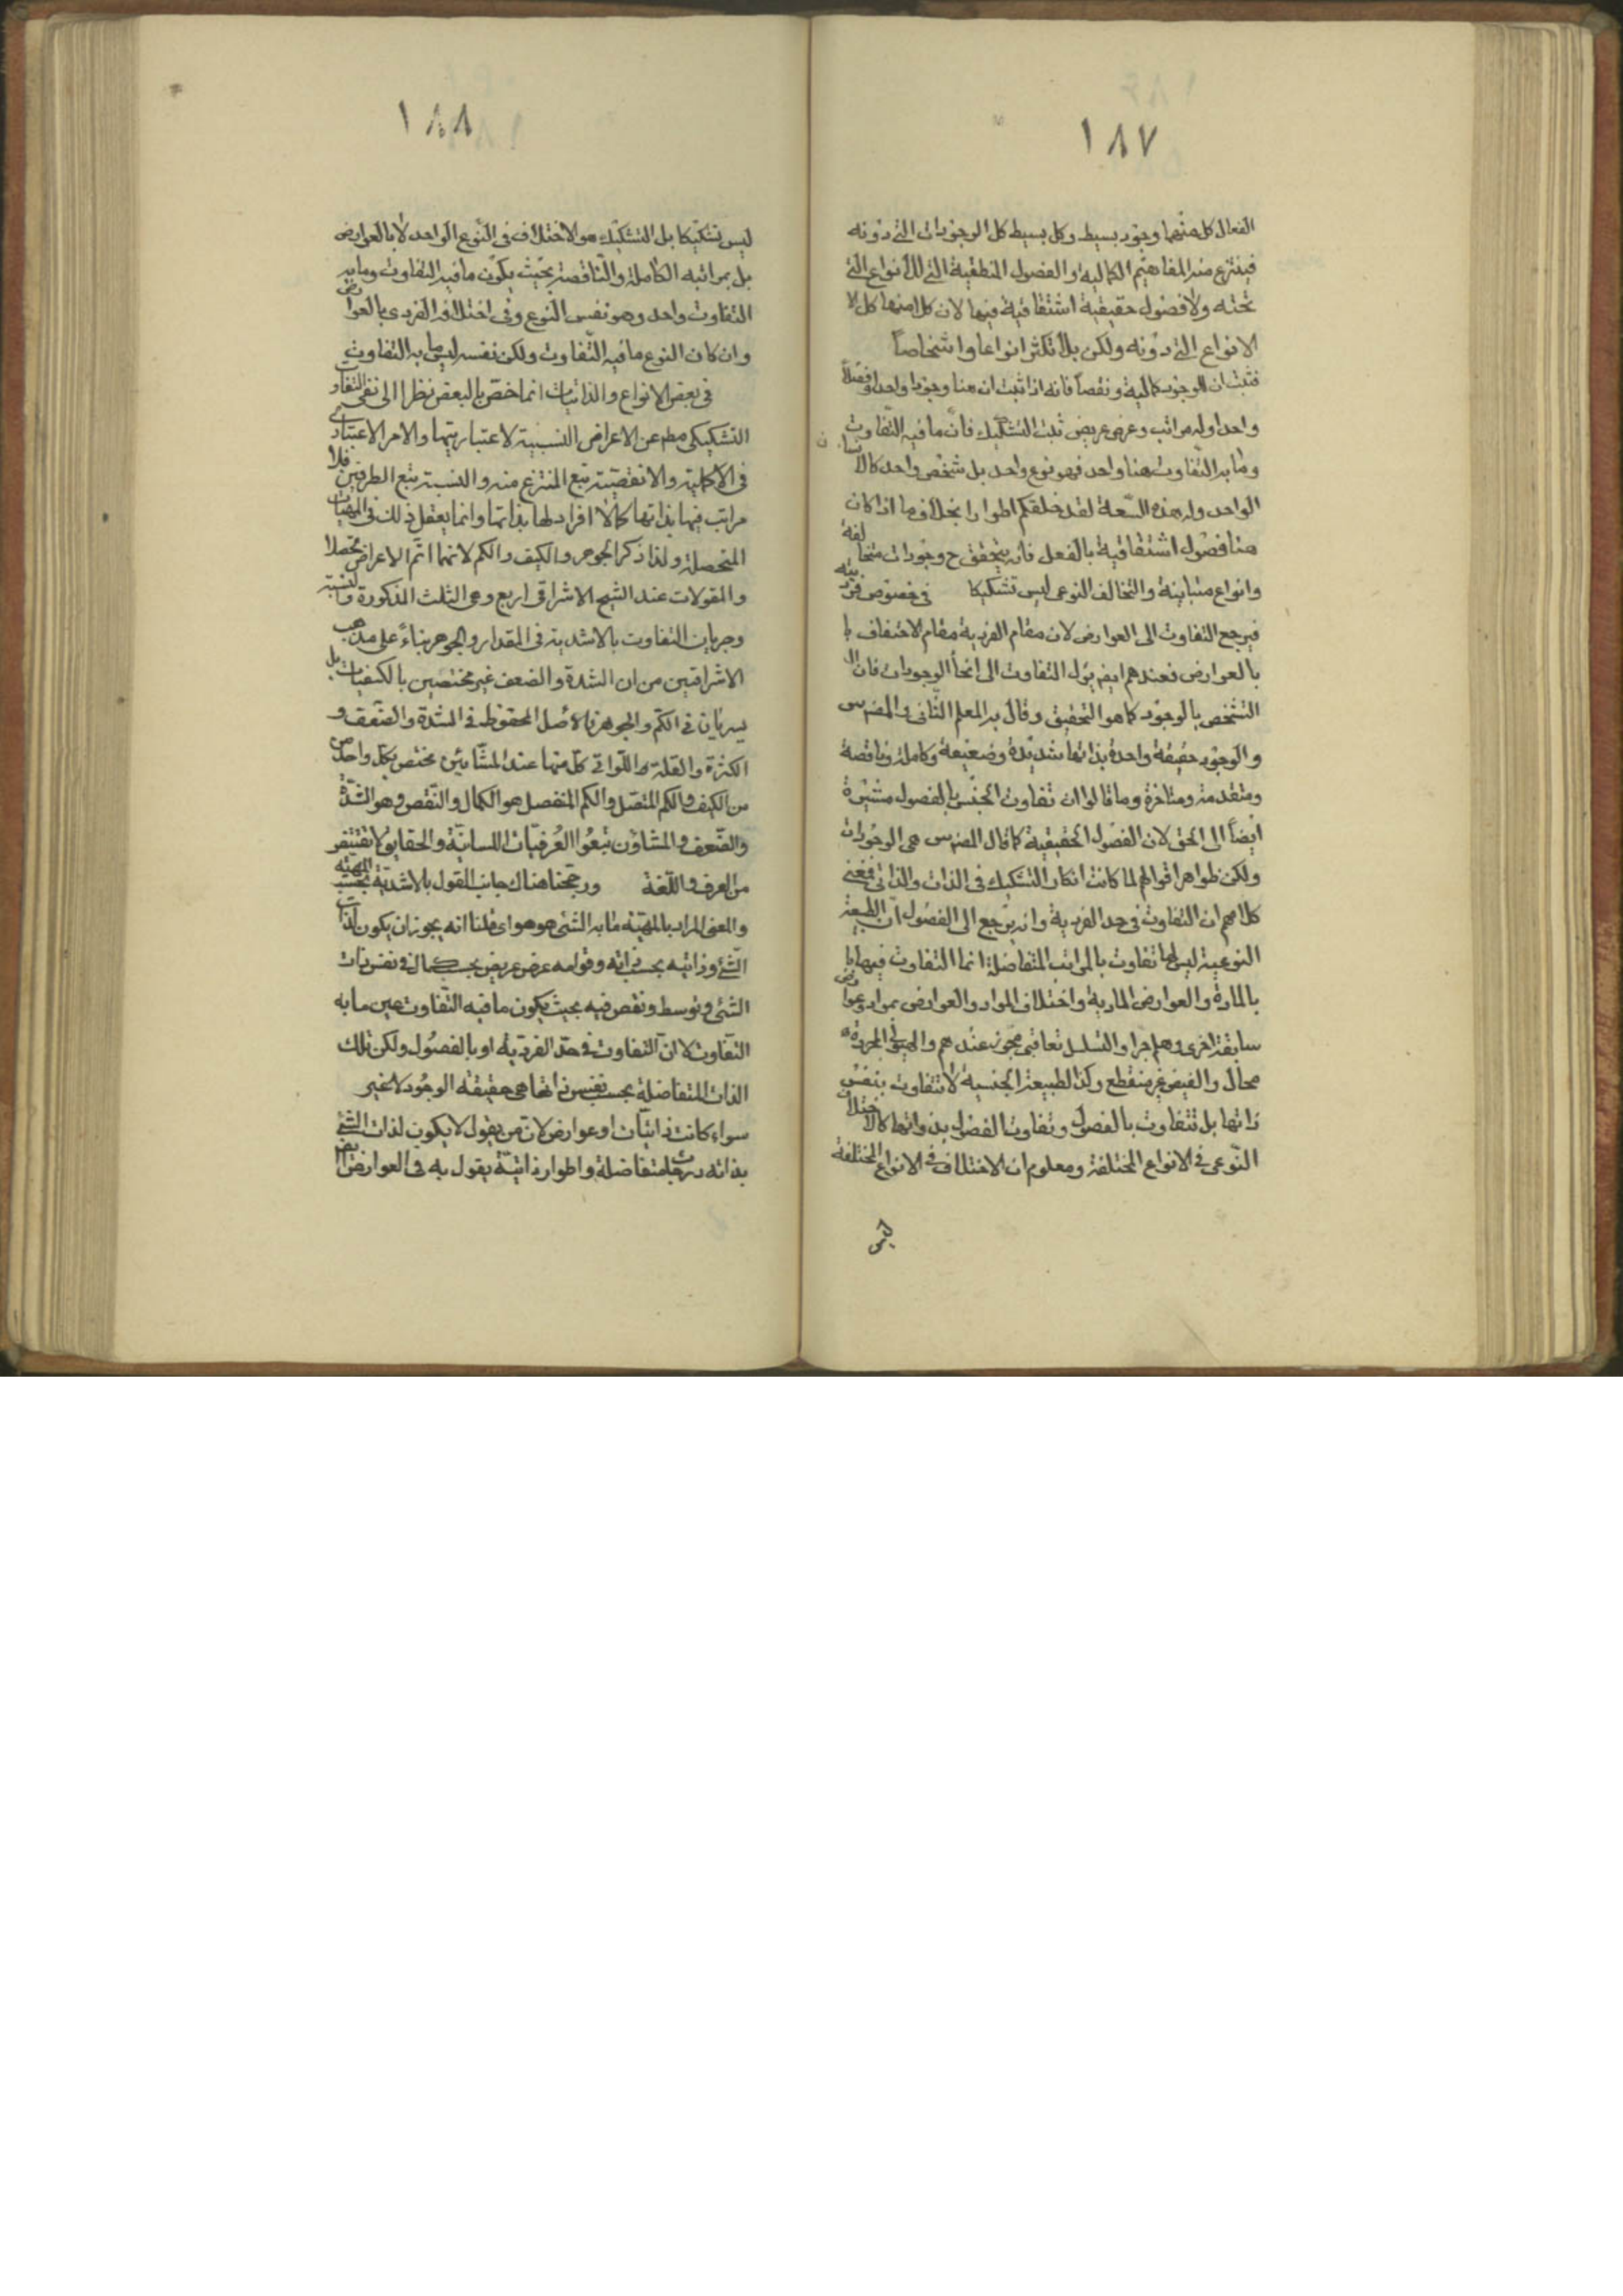 ١٨٧
الفعال كل منهما وجود بسيط وكل بسيط كل الوجودات التي دونه
فينتزع منه المفاهيم الكمالية والفصول المنطقية التي للأنواع التي
تحته ولا فصول حقيقية اشتقاقية فيها لان كلا منها كل الا
الانواع التي دونه ولكن بلا تكثر انواعا واشخاصاً
فثبت ان للوجود كمالية ونقصاً فانه اذا ثبت ان هنا وجودا واحدا وفصلاً
واحدا وله مراتب وعرض عريض ثبت التشكيك فانّ ما فيه التفاوت
وما به التفاوت هنا واحد فهو نوع واحد بل شخص واحد كالانسان
الواحد وله هذه السّعة لقد خلقكم اطوارا بخلاف ما اذا كان
هنا فصول اشتقاقية بالفعل فانه يتحقق ح وجودات متخالفة
وانواع متباينة والتخالف النوعى ليس تشكيكا في خصوص فرديته
فيرجع التفاوت الى العوارض لان مقام الفردية مقام الاحتفاف با
بالعوارض فعندهم ايض يؤل التفاوت الى انحأ الوجودات فان ال
التشخص بالوجود كما هو التحقيق وقال به المعلم الثّانى والمضرس
والوجود حقيقة واحدة بذاتها شديدة وضعيفة وكاملة وناقصة
ومتقدمة ومتاخرة وما قالوا ان تفاوت الجنس بالفصول مشيرة
ايضاً الى الحق لان الفصول الحقيقية كما قال المضرس هى الوجودات
ولكن ظواهر اقوالهم لما كانت انكار التشكيك في الذات والذاتى فمغنى
كلامهم ان التفاوت في حد الفردية وانه يرجع الى الفصول انّ الطبيعة
النوعية ليس لها تفاوت بالمراتب المتفاضلة انما التفاوت فيها با
بالمادة والعوارض المادية واختلاف المواد والعوارض بمواد وعوارض
سابقة اخرى وهلم جرا والتسلسل تعاقبى مجوز عندهم والهيولى المجردة
محال والفيض غير منقطع وكذا لطبيعة الجنسية لا تتفاوت بنفس
ذاتها بل تتفاوت بالفصول وتفاوت الفصول بذواتها كالاختلاف
النّوعى في الانواع المختلفة ومعلوم ان الاختلاف في الانواع المختلفة
ليس
١٨٨
ليس تشكيكا بل التشكيك هو الاختلاف في النّوع الواحد لا بالعوارض
بل بمراتبه الكاملة والنّاقصة بحيث يكون ما فيه التفاوت وما به
التفاوت واحد وهو نفس النوع وفى اختلافه الفردى بالعوارض
وان كان النوع ما فيه التّفاوت ولكن نفسه ليس ما به التفاوت
في بعض الانواع والذاتيات انما خصّ بالبعض نظرا الى نفى التفاو
التشكيكى مط عن الاعراض النسبية لاعتباريتها والامر الاعتبارى
في الاكملية والانقصية تبع المنتزع منه والنسبة تتبع الطرفين فلا
مراتب فيها بذاتها كما لا افراد لها بذاتها وانما يعقل ذلك في المهيات
المتحصلة ولذا ذكر الجوهر والكيف والكم لانهما اتّم الاعراض تحصلا
والمقولات عند الشيخ الاشراقى اربع وهى الثلث المذكورة والنسبة
وجريان التفاوت بالاشدية في المقدار والجوهر بناءً على مذهب
الاشراقيين من ان الشدة والضعف غير مختصين بالكيفيات بل
يسريان في الكم والجوهر فالأصل المحفوظ في الشدة والضعف و
الكثرة والقلة واللواتى كل منها عند المشّائين مختص بكل واحد من
من الكيف والكم المتصل والكم المنفصل هو الكمال والنّقص وهو الشدّة
والضّعف والمشاؤن تبعوا العُرفيّات اللسانيّة والحقايق لا تقتنفر
من العرف واللغة ورجّحنا هناك جانب القول بالاشديّة بحسب المهيّة
والمعنى المراد بالمهيّة ما به الشئ هو هو اى قلنا انه يجوز ان يكون لذات
الشّئ وذاتيه بحسب ذاته وقوامه عرض عريض بحسب كمال في نفس ذات
الشئ وتوسط ونقص فيه بحيث يكون ما فيه التّفاوت عين ما به
التفاوت لا انّ التفاوت في حدّ الفرديّة او بالفصُول ولكن تلك
الذات المتفاضلة بحسب نفس ذاتها هى حقيقة الوجُود لا غير
سواء كانت ذاتيّات او عوارض لان من يقول لا يكون لذات الشئ
بذاته درجات متفاضلة واطوار ذاتيّة يقول به في العوارض ايض